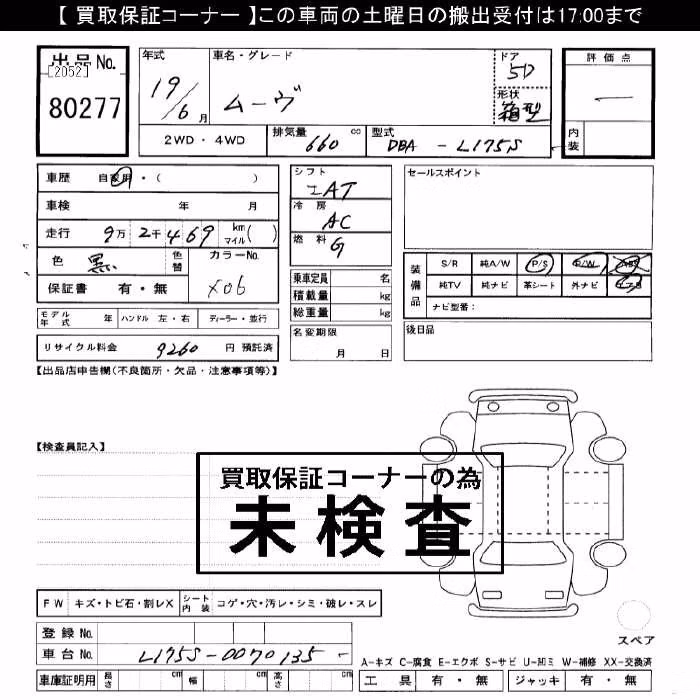 【 買取保証コーナー 】この車両の土曜日の搬出受付は17:00まで
出品No.
[2052]
80277
年式 車名・グレード ドア 評価点
19/6月 ムーヴ 5D
形状
箱型
2WD・4WD 排気量 660 cc 型式 DBA - L175S 内装
車歴 自家用・( )
車検 年 月
走行 9万2千469 km マイル( )
色 黒 色替 カラーNo.
X06
保証書 有・無
シフト
IAT
冷房
AC
燃料
G
乗車定員 名
積載量 kg
総重量 kg
セールスポイント
装備品 S/R 純A/W P/S P/W ABS
純TV 純ナビ 革シート 外ナビ エアB
ナビ型番:
モデル年式 年 ハンドル 左・右 ディーラー・並行
リサイクル料金 9260 円 預託済
名変期限
月 日
後日品
【出品店申告欄(不良箇所・欠品・注意事項等)】
【検査員記入】
買取保証コーナーの為
未検査
FW キズ・トビ石・割レX シート内装 コゲ・穴・汚レ・シミ・破レ・スレ
登録No.
車台No. L175S-0070135
スペア
車庫証明用 長さ cm 幅 cm 高さ cm
A-キズ C-腐食 E-エクボ S-サビ U-凹ミ W-補修 XX-交換済
工具 有・無 ジャッキ 有・無